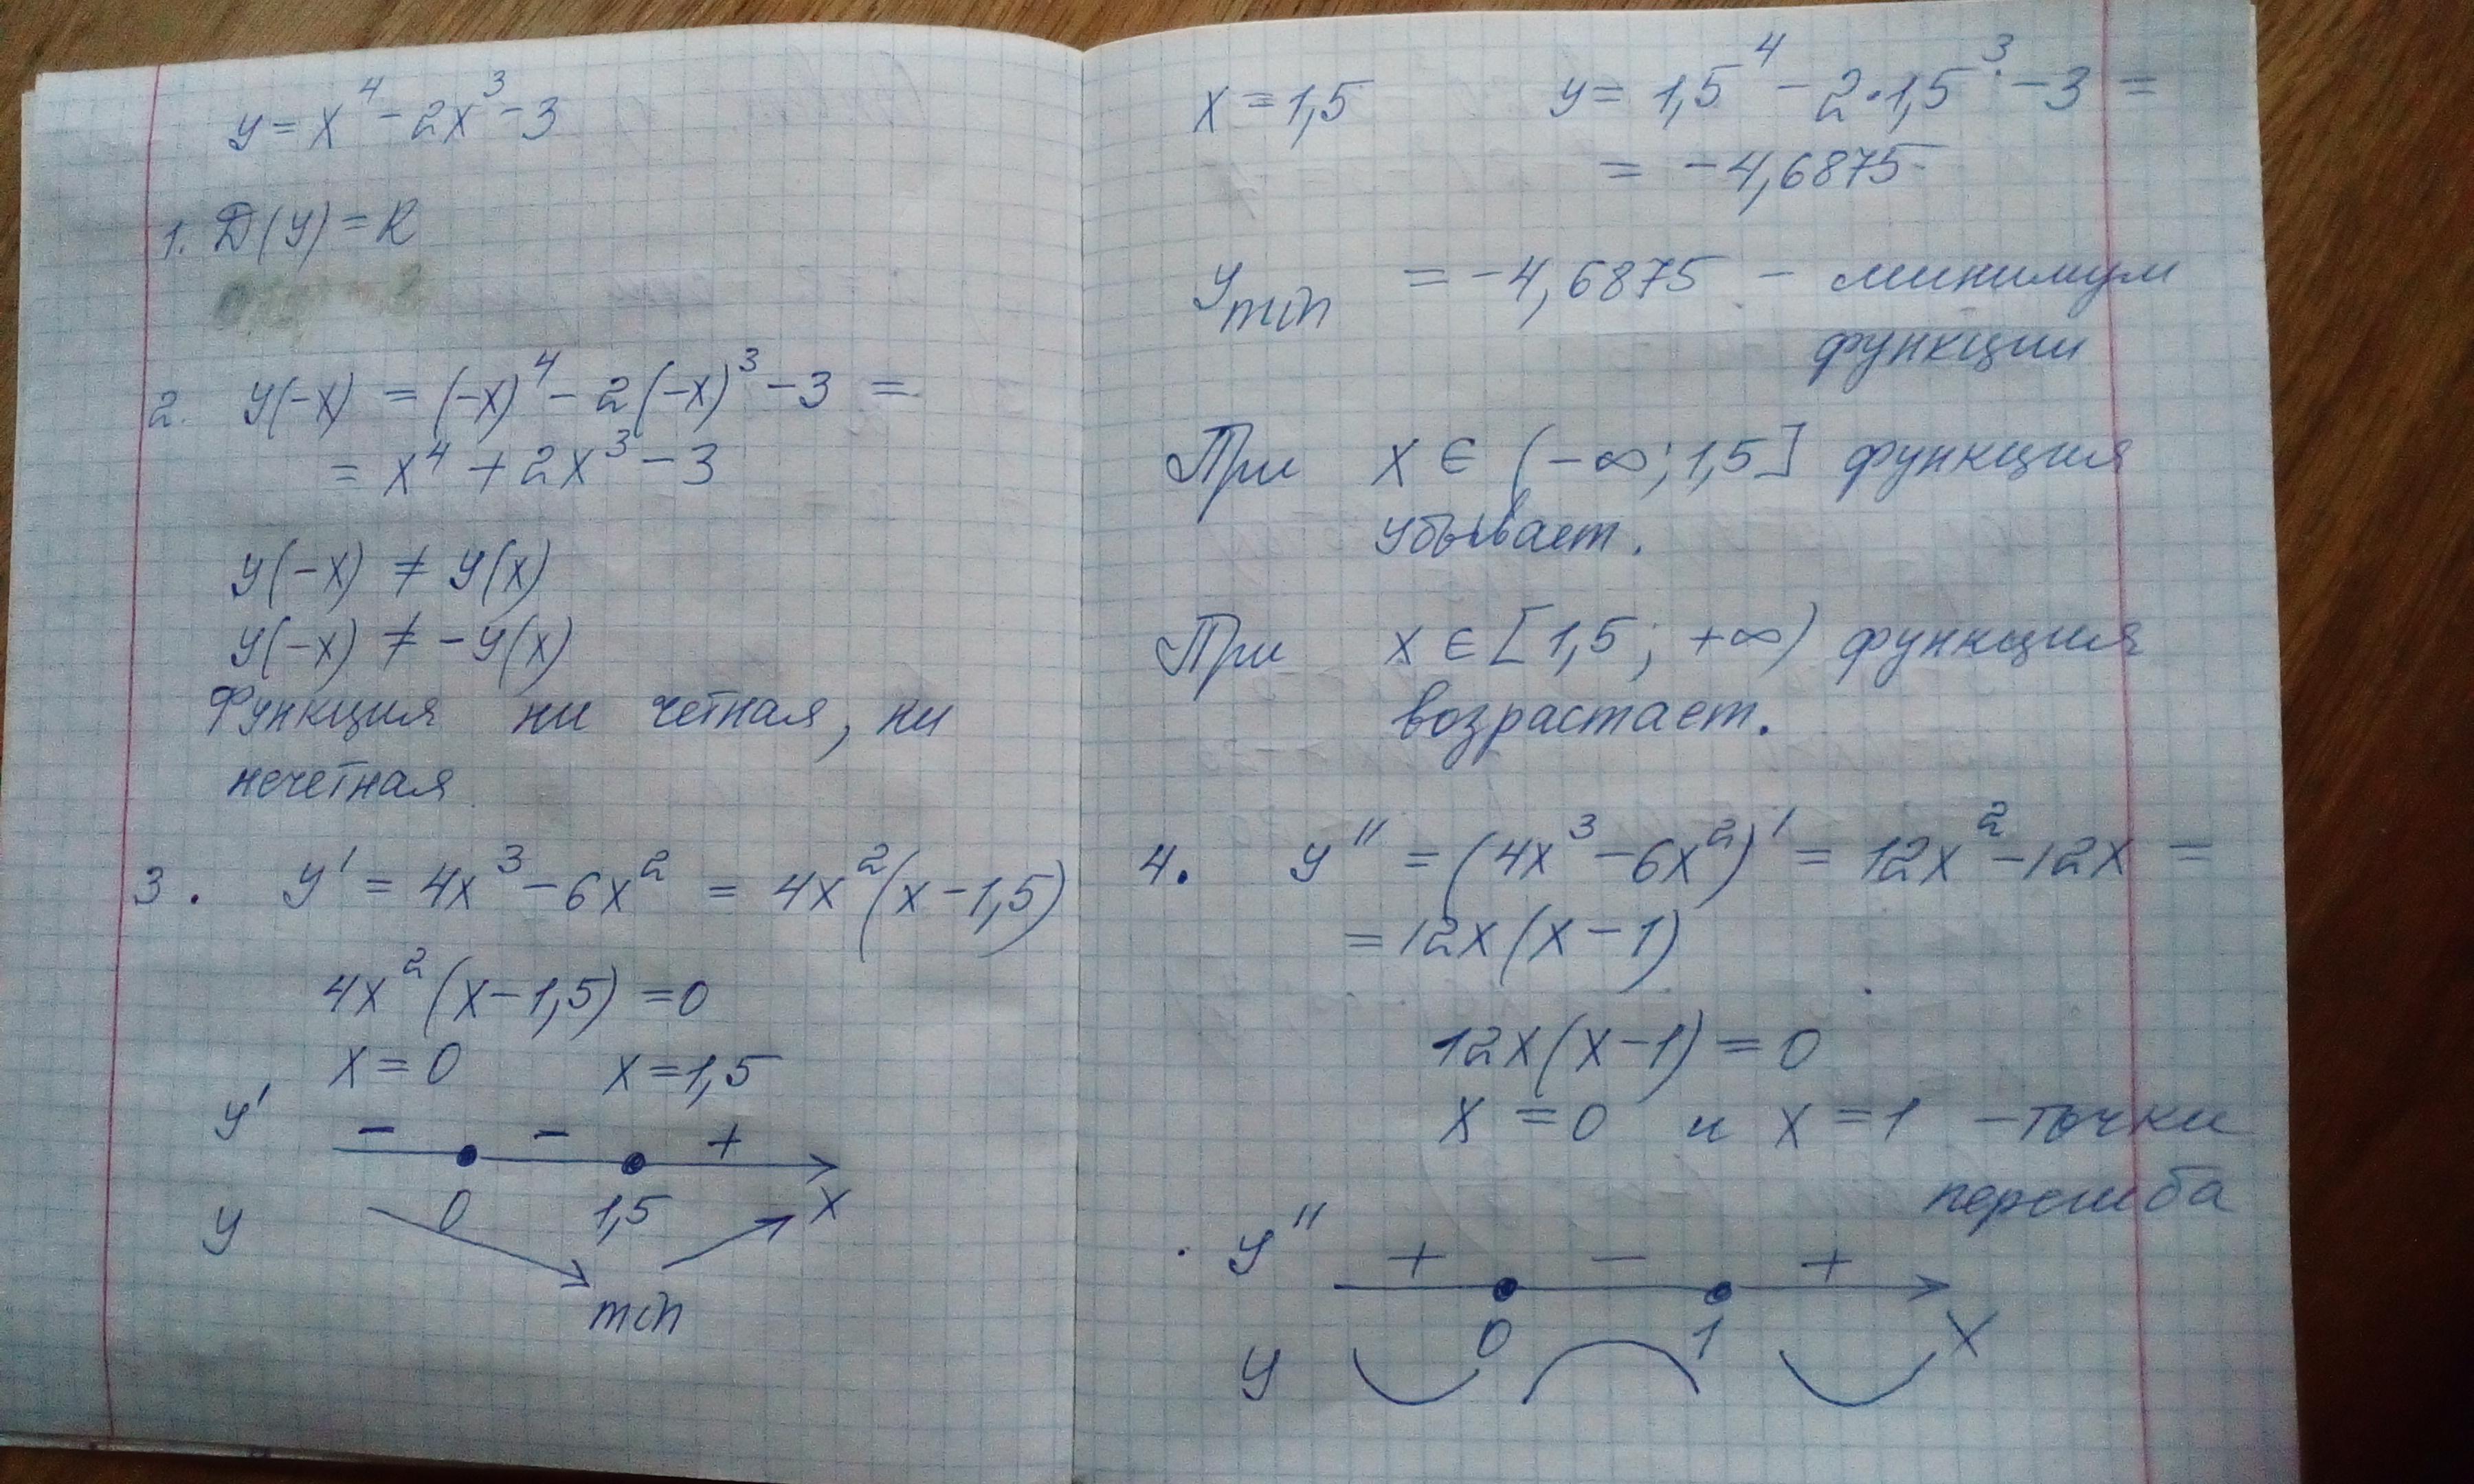 y = x⁴ - 2x³ - 3
1. D(y) = R
2. y(-x) = (-x)⁴ - 2(-x)³ - 3 =
= x⁴ + 2x³ - 3
y(-x) ≠ y(x)
y(-x) ≠ -y(x)
Функция ни четная, ни
нечетная
3. y' = 4x³ - 6x² = 4x²(x - 1,5)
4x²(x - 1,5) = 0
x = 0 x = 1,5
y' - - +
0 1,5 x
y
min
x = 1,5 y = 1,5⁴ - 2·1,5³ - 3 =
= -4,6875
y min = -4,6875 - минимум
функции
При x ∈ (-∞; 1,5] функция
убывает.
При x ∈ [1,5; +∞) функция
возрастает.
4. y'' = (4x³ - 6x²)' = 12x² - 12x =
= 12x(x - 1)
12x(x - 1) = 0
x = 0 и x = 1 - точки
перегиба
y'' + - +
0 1 x
y